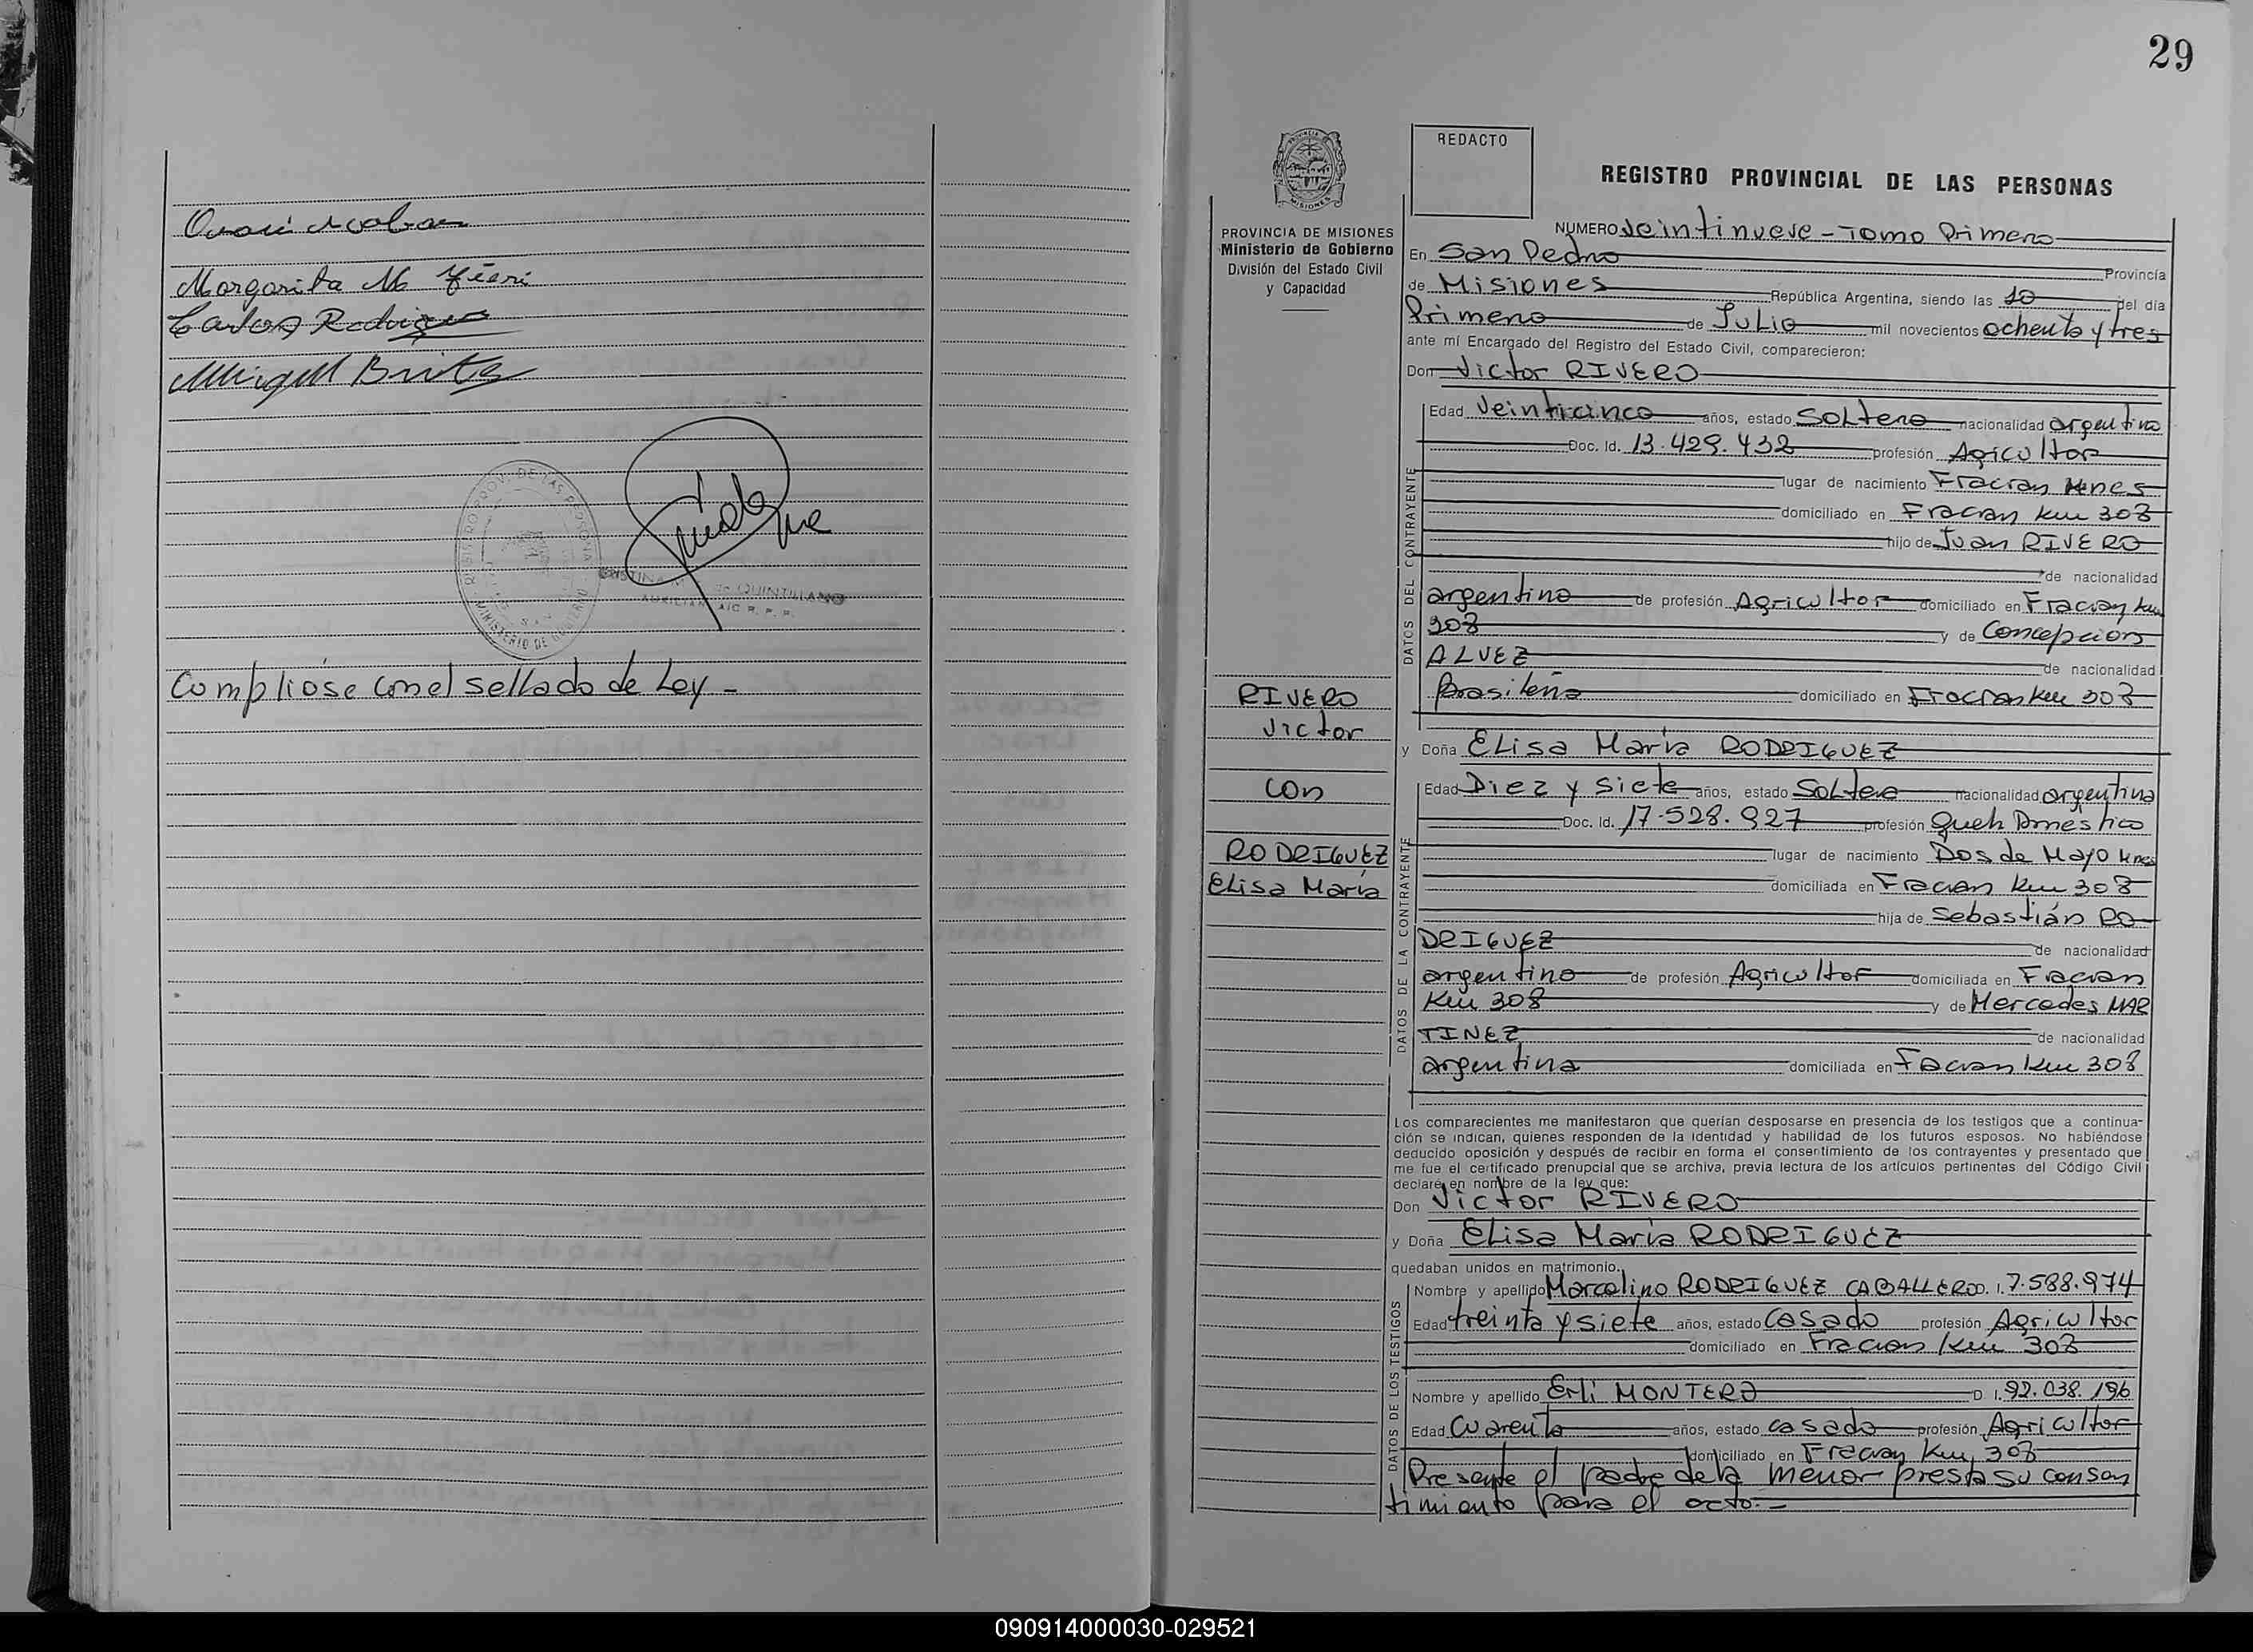 Margarita M
Carlos Rodriguez
Miguel Brites
REGISTRO PROV. DE LAS PERSONAS
MINISTERIO DE GOBIERNO
QUINTILLANO
AUXILIAR A/C R. P. P.
Cumplióse con el sellado de Ley -
29
REDACTO
MISIONES
PROVINCIA DE MISIONES
Ministerio de Gobierno
División del Estado Civil
y Capacidad
REGISTRO PROVINCIAL DE LAS PERSONAS
NUMERO Veintinueve - Tomo Primero
En San Pedro Provincia
de Misiones República Argentina, siendo las 10 del día
Primero de Julio mil novecientos ochenta y tres
ante mí Encargado del Registro del Estado Civil, comparecieron:
Don Victor RIVERO
DATOS DEL CONTRAYENTE
Edad Veinticinco años, estado Soltero nacionalidad argentina
Doc. Id. 13.429.432 profesión Agricultor
lugar de nacimiento Fracran Mnes
domiciliado en Fracran Km 308
hijo de Juan RIVERO
de nacionalidad
argentino de profesión Agricultor domiciliado en Fracran Km
308 y de Concepcion
ALVEZ de nacionalidad
Brasileña domiciliado en Fracran Km 308
RIVERO
Victor
con
RODRIGUEZ
Elisa María
y Doña Elisa María RODRIGUEZ
DATOS DE LA CONTRAYENTE
Edad Diez y siete años, estado Soltera nacionalidad argentina
Doc. Id. 17.528.927 profesión Queh Doméstico
lugar de nacimiento Dos de Mayo Mnes
domiciliada en Fracran Km 308
hija de Sebastián RO-
DRIGUEZ de nacionalidad
argentino de profesión Agricultor domiciliada en Fracran
Km 308 y de Mercedes MAR
TINEZ de nacionalidad
argentina domiciliada en Facran Km 308
Los comparecientes me manifestaron que querían desposarse en presencia de los testigos que a continua-
ción se indican, quienes responden de la identidad y habilidad de los futuros esposos. No habiéndose
deducido oposición y después de recibir en forma el consentimiento de los contrayentes y presentado que
me fue el certificado prenupcial que se archiva, previa lectura de los artículos pertinentes del Código Civil
declaré en nombre de la ley que:
Don Victor RIVERO
y Doña Elisa María RODRIGUEZ
quedaban unidos en matrimonio.
DATOS DE LOS TESTIGOS
Nombre y apellido Marcelino RODRIGUEZ CABALLERO D. I. 7.588.974
Edad treinta y siete años, estado Casado profesión Agricultor
domiciliado en Fracran Km 308
Nombre y apellido Erli MONTERO D. I. 92.038.196
Edad Cuarenta años, estado casado profesión Agricultor
domiciliado en Fracran Km 308
Presente el padre de la menor presta su consen
timiento para el acto.-
090914000030-029521